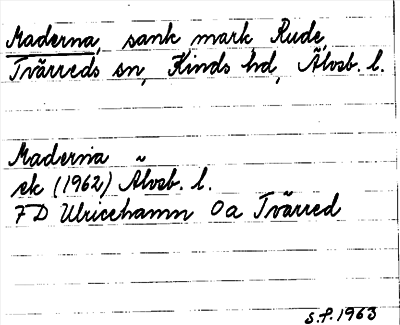 Maderna, sank mark Rude,
Tvärreds sn, Kinds hd, Älvsb. l.
Maderna
ek (1962) Älvsb. l.
7D Ulricehamn 0a Tvärred
S.P. 1963